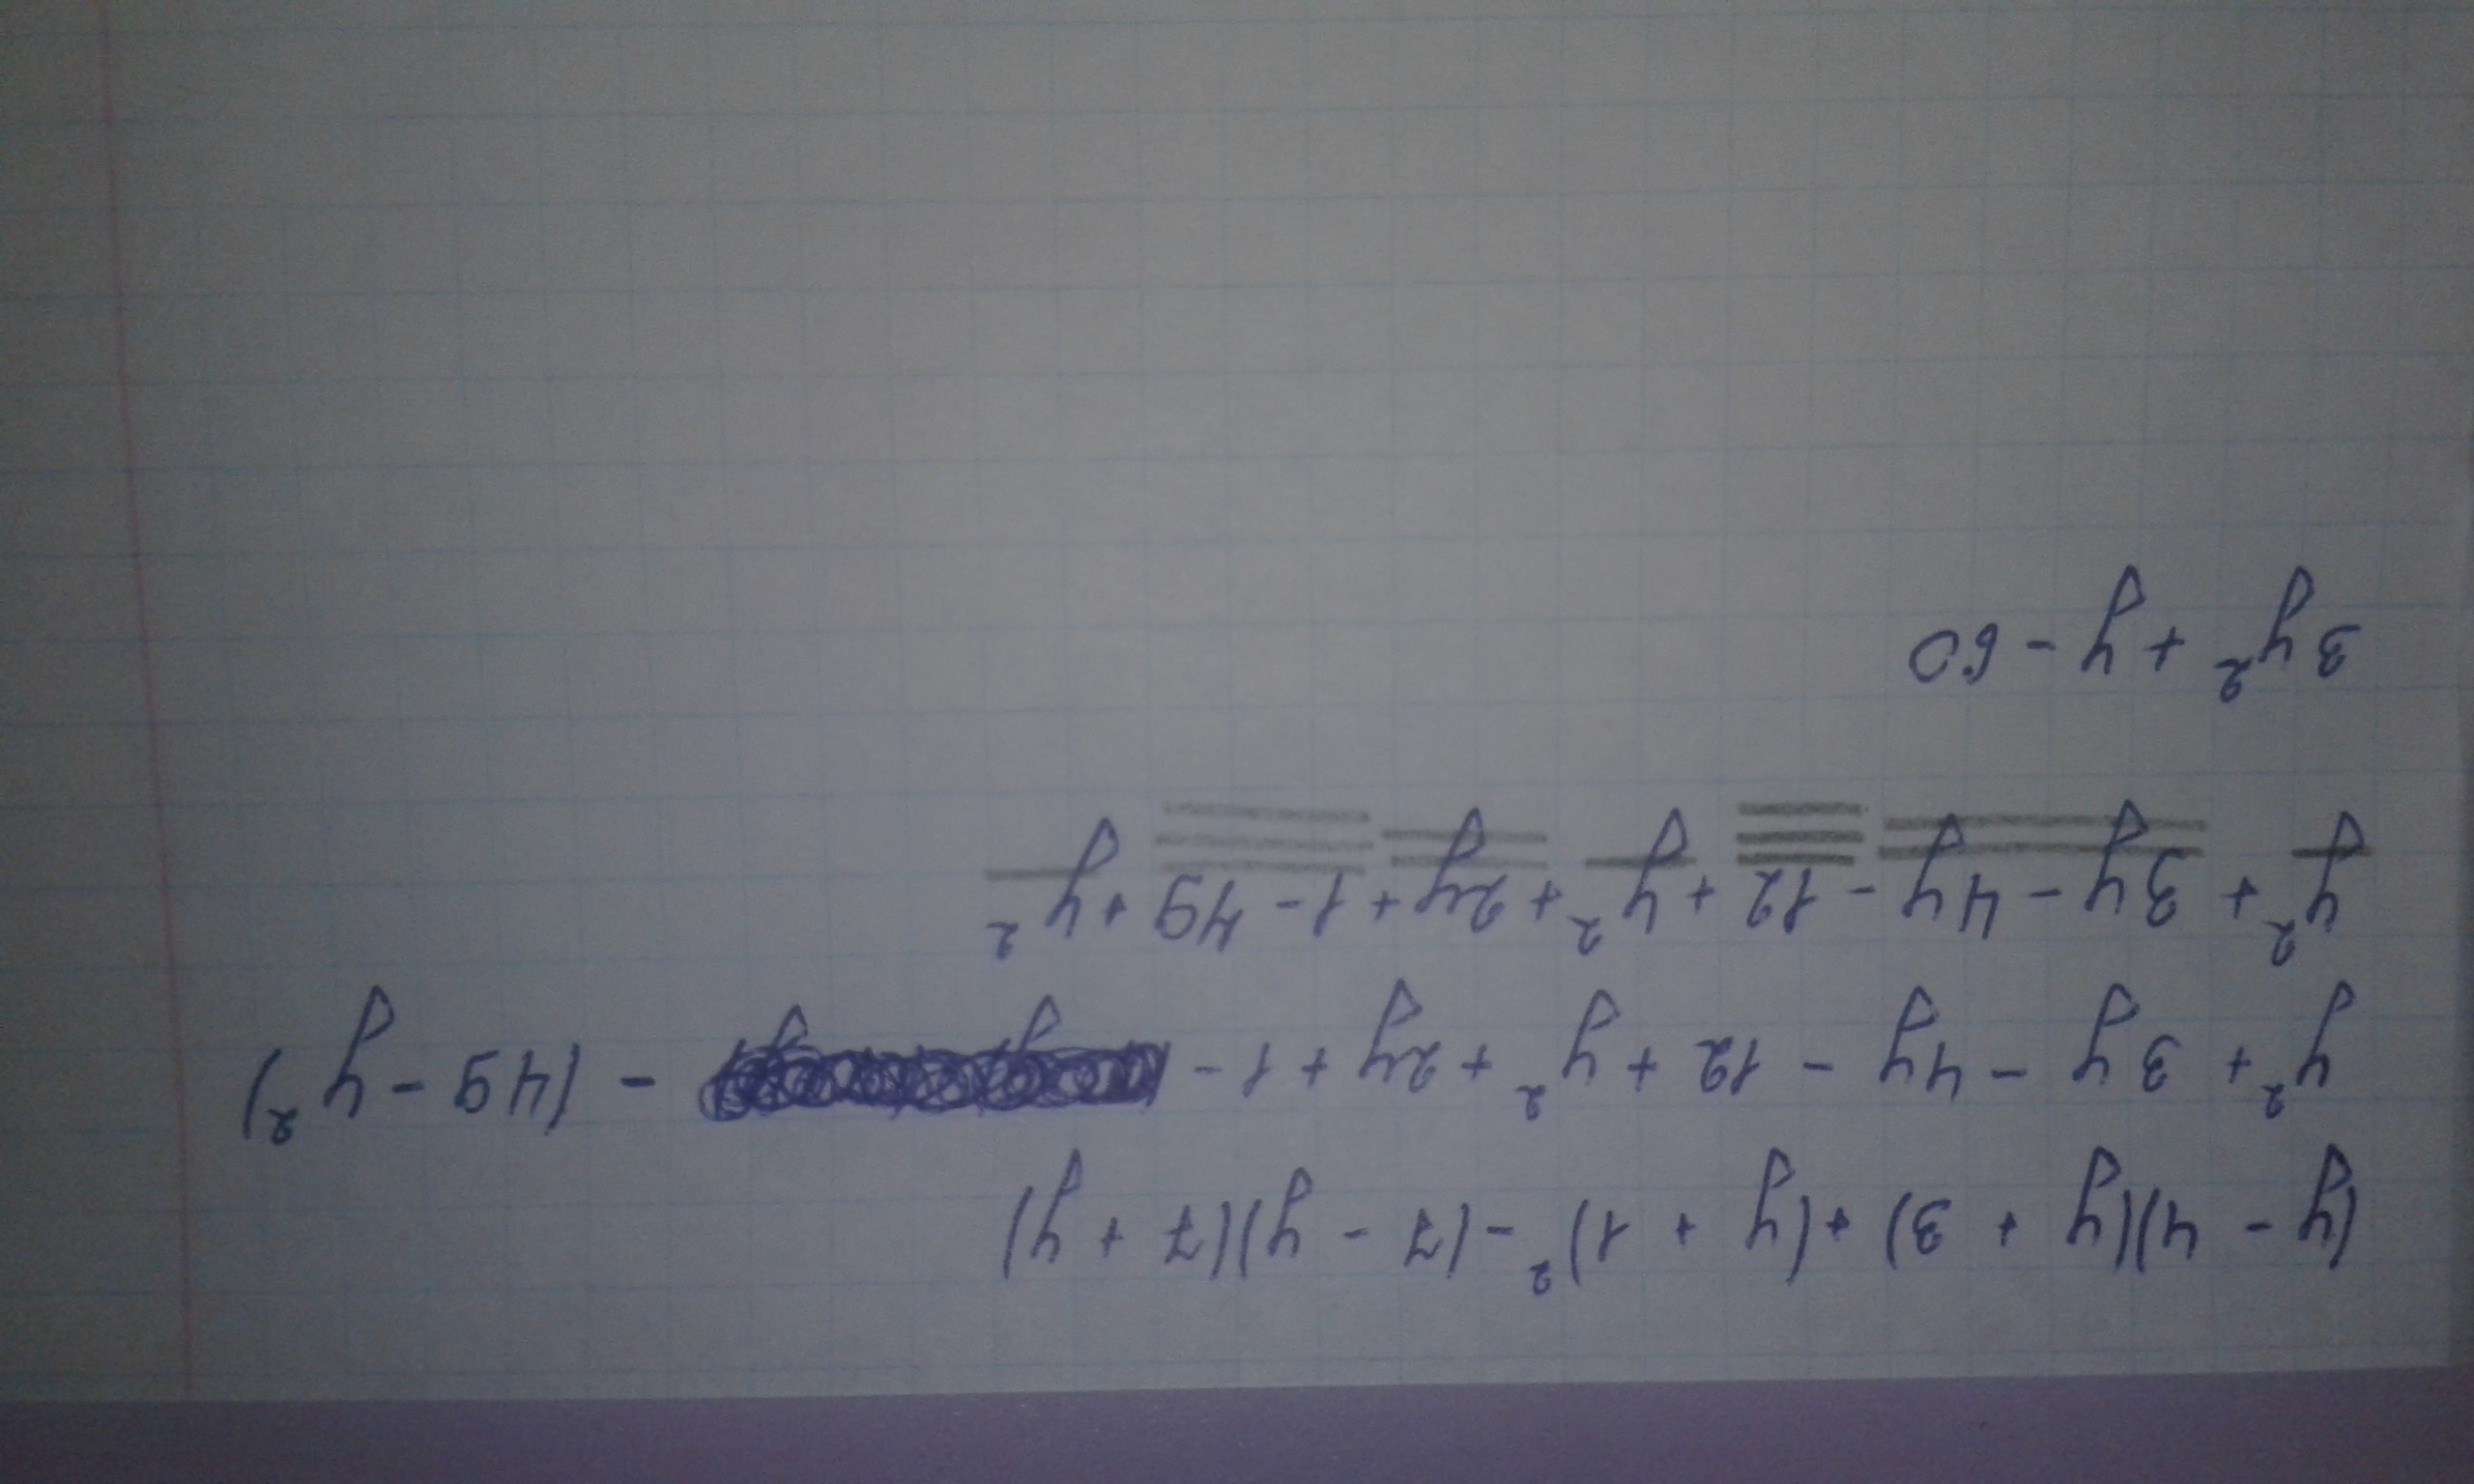 (y - 4)(y + 3) + (y + 1)² - (7 - y)(7 + y)
y² + 3y - 4y - 12 + y² + 2y + 1 - - (49 - y²)
y² + 3y - 4y - 12 + y² + 2y + 1 - 49 + y²
3y² + y - 60